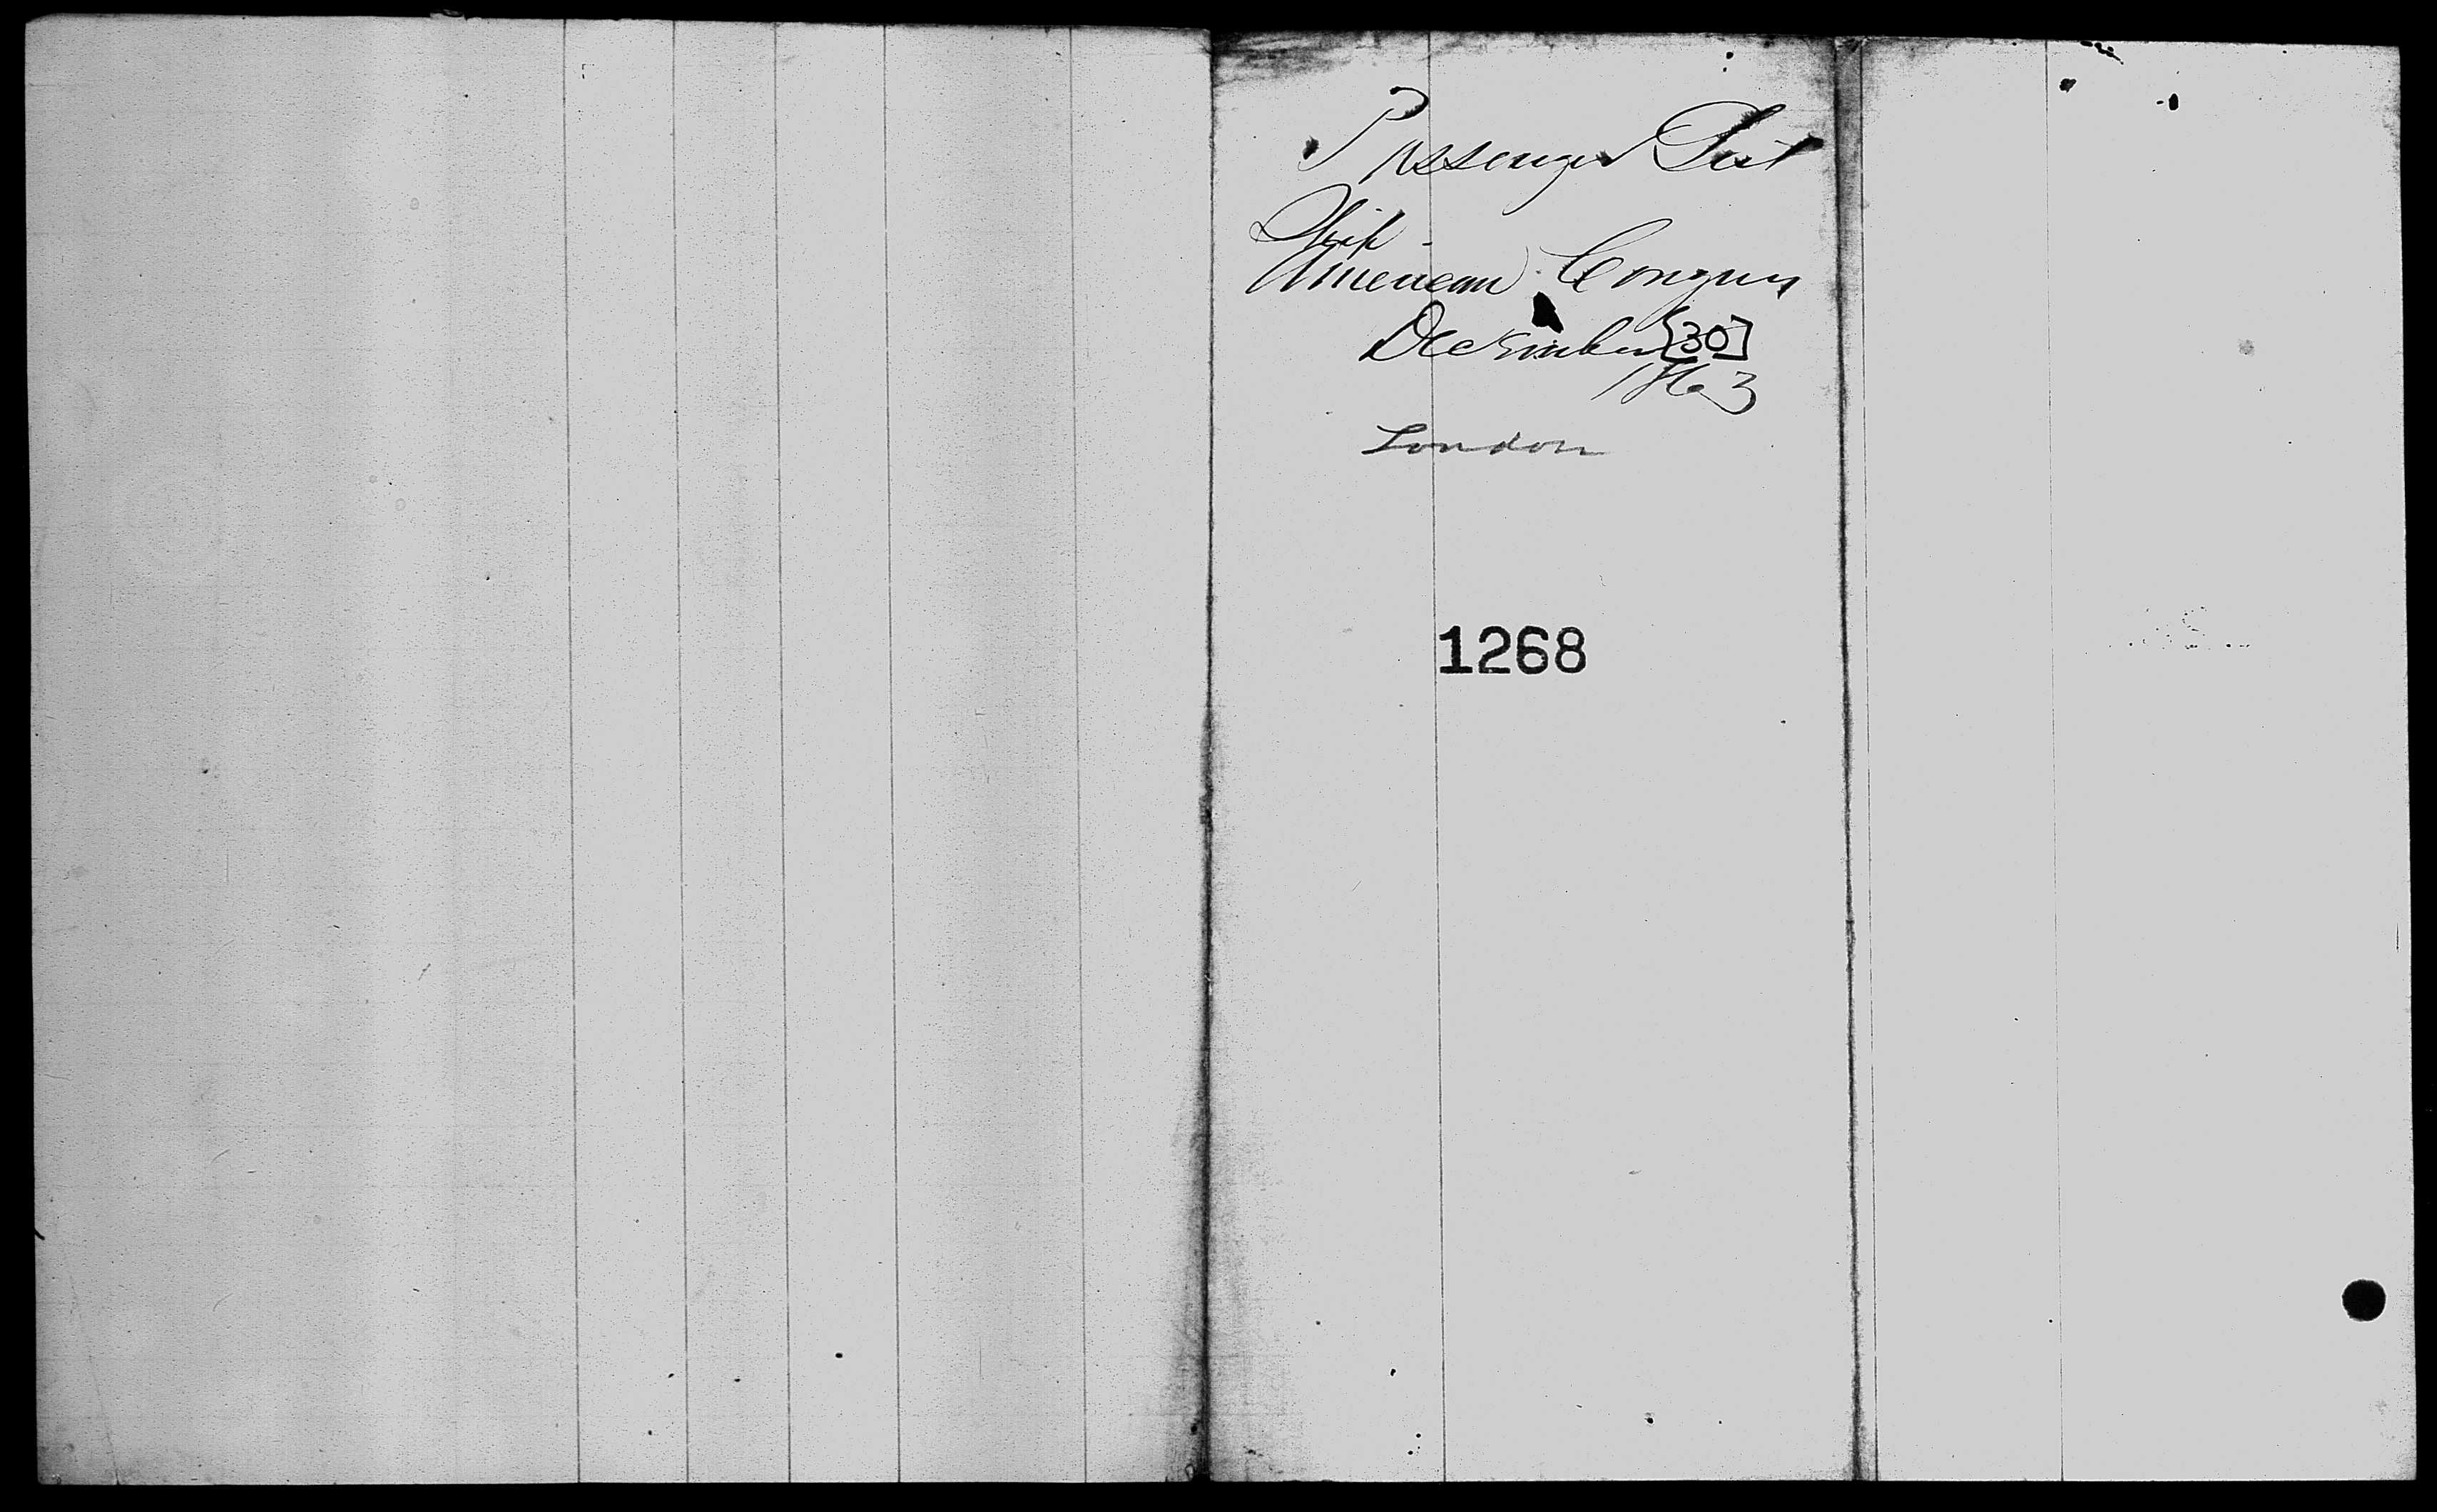 Passenger List
Ship
American Congress
December [30]
1863
London
1268